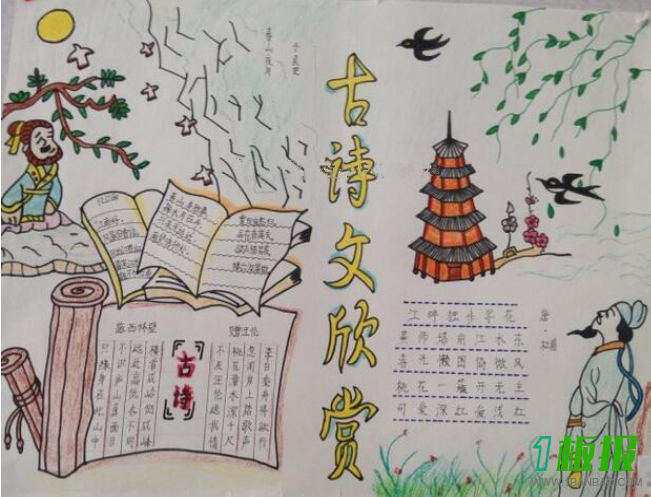 古诗文欣赏
春山夜月
于良史
春山多胜事
题西林壁
横看成岭侧成峰
远近高低各不同
不识庐山真面目
只缘身在此山中
古诗
赠汪伦
李白乘舟将欲行
忽闻岸上踏歌声
桃花潭水深千尺
不及汪伦送我情
江畔独步寻花
唐·杜甫
黄师塔前江水东
春光懒困倚微风
桃花一簇开无主
可爱深红爱浅红
1板报
WWW.1BANBAO.COM